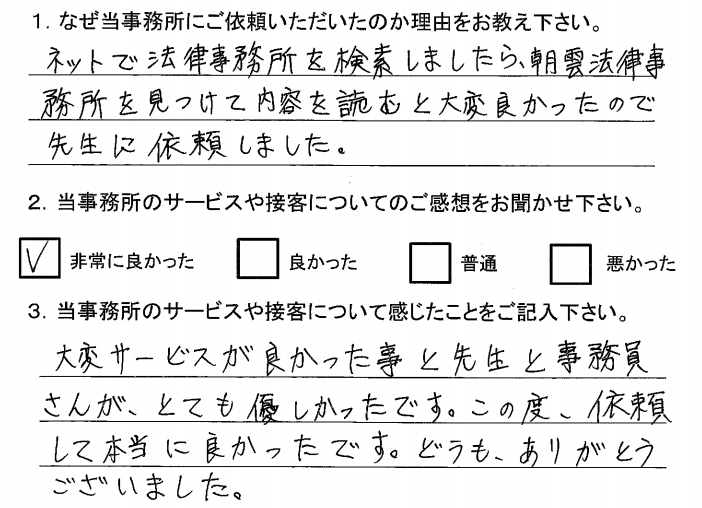 1. なぜ当事務所にご依頼いただいたのか理由をお教え下さい。
ネットで法律事務所を検索しましたら、朝雲法律事
務所を見つけて内容を読むと大変良かったので
先生に依頼しました。
2. 当事務所のサービスや接客についてのご感想をお聞かせ下さい。
✓ 非常に良かった 良かった 普通 悪かった
3. 当事務所のサービスや接客について感じたことをご記入下さい。
大変サービスが良かった事と先生と事務員
さんが、とても優しかったです。この度、依頼
して本当に良かったです。どうも、ありがとう
ございました。